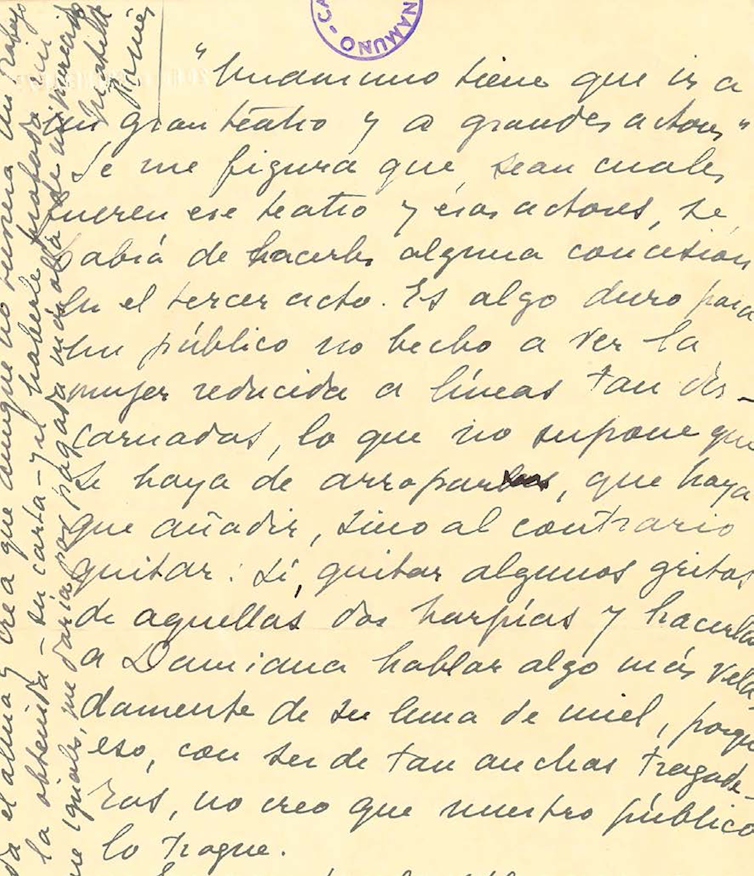 "Unamuno tiene que ir a
un gran teatro y a grandes actores"
Se me figura que, sean cuales
fueren ese teatro y ésos actores, se
habiá de hacerles alguna concesión
en el tercer acto. Es algo duro para
un público no hecho a ver la
mujer reducida a líneas tan des-
carnadas, lo que no supone que
se haya de arroparlas, que haya
que añadir, sino al contrario
quitar: Sí, quitar algunos gritos
de aquellas dos harpías y hacerla
a Damiana hablar algo más vela
damente de su luna de miel, porque
eso, con ser de tan anchas tragade-
ras, no creo que nuestro público
lo trague.
da el alma y crea que aunque no tuviera mi trabajo
la obtenida - su carta - y el haberle
me iguales, me daría por pagada más allá de mi merecido
Matilde
Ramos
NAMUNO - CA